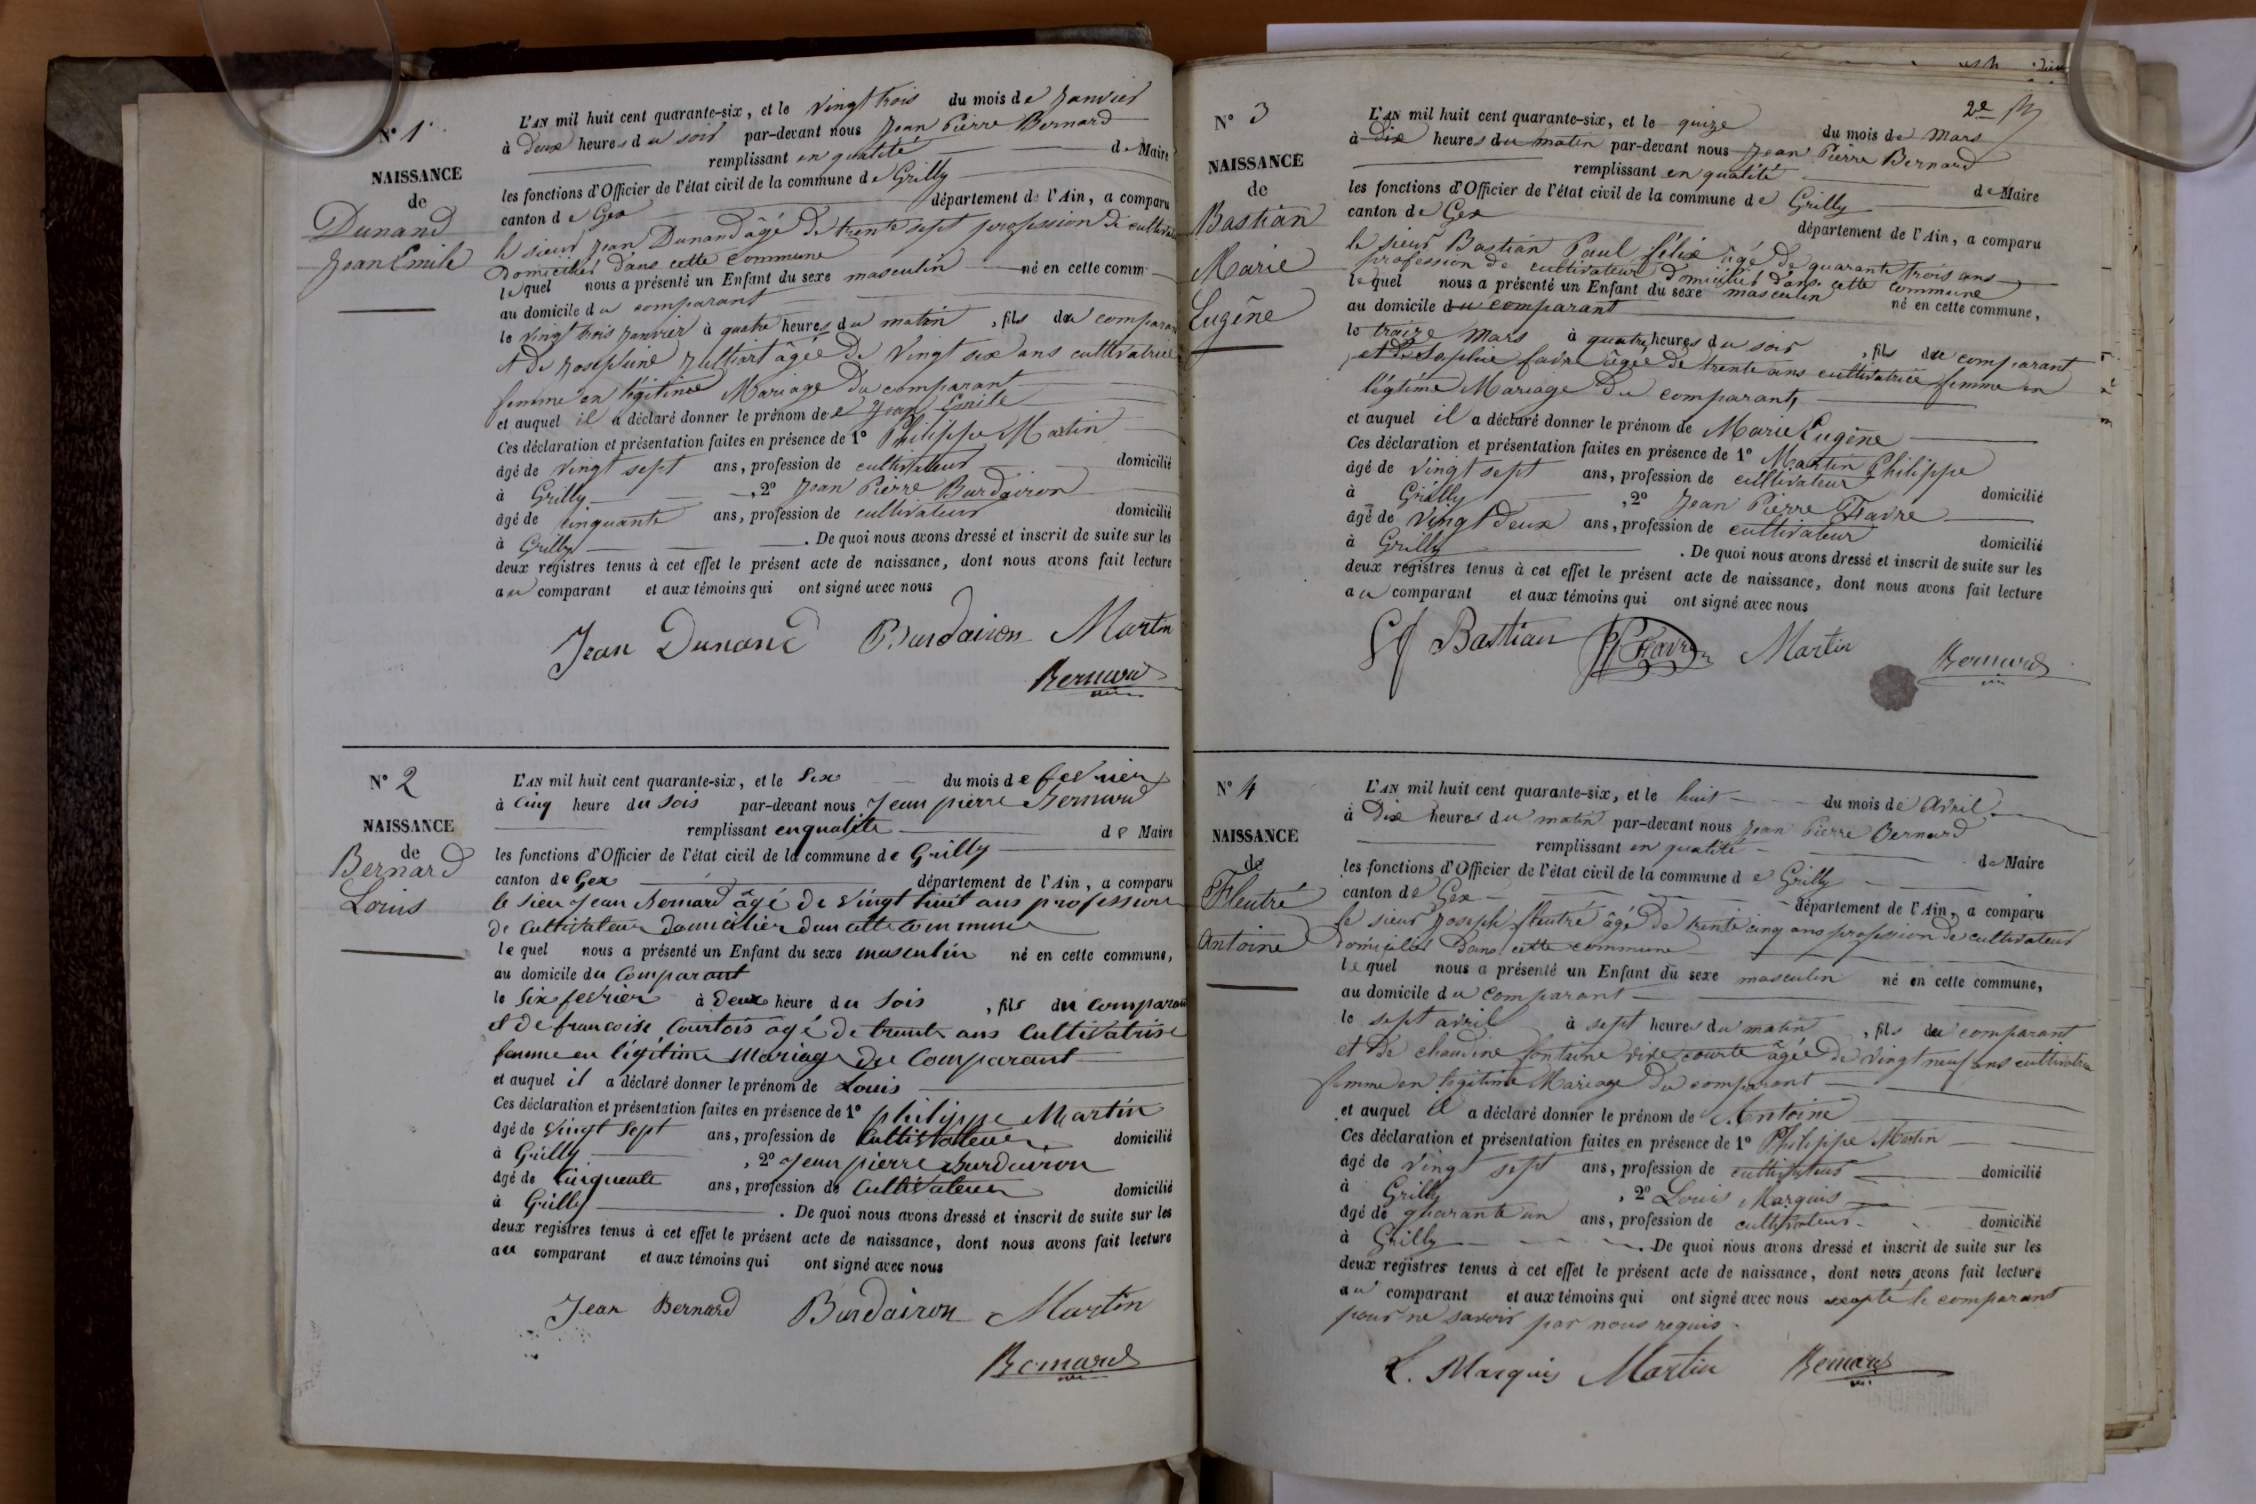 N° 1
NAISSANCE
de
Dunand
Jean Emile
L'AN mil huit cent quarante-six, et le vingt trois du mois de Janvier
à deux heures du soir par-devant nous Jean Pierre Bernard
remplissant en qualité de Maire
les fonctions d'Officier de l'état civil de la commune de Grilly
canton de Gex département de l'Ain, a comparu
le sieur Jean Dunand âgé de trente sept profession de cultivateur
domicilié dans cette commune
lequel nous a présenté un Enfant du sexe masculin né en cette comm
au domicile du comparant
le vingt trois janvier à quatre heures du matin, fils du comparant
et de Josephine âgée de vingt six ans cultivatrice
femme en légitime Mariage du comparant
et auquel il a déclaré donner le prénom de Jean Emile
Ces déclaration et présentation faites en présence de 1° Philippe Martin
âgé de vingt sept ans, profession de cultivateur domicilié
à Grilly, 2° Jean Pierre Burdairon
âgé de cinquante ans, profession de cultivateur domicilié
à Grilly. De quoi nous avons dressé et inscrit de suite sur les
deux registres tenus à cet effet le présent acte de naissance, dont nous avons fait lecture
au comparant et aux témoins qui ont signé avec nous
Jean Dunand Burdairon Martin
Bernard
N° 2
NAISSANCE
de
Bernard
Louis
L'AN mil huit cent quarante-six, et le six du mois de fevrier
à cinq heure du soir par-devant nous Jean pierre Bernard
remplissant en qualite de Maire
les fonctions d'Officier de l'état civil de la commune de Grilly
canton de Gex département de l'Ain, a comparu
le sieur Jean Bernard âgé de vingt huit ans profession
de cultivateur domicilier dans cette commune
lequel nous a présenté un Enfant du sexe masculin né en cette commune,
au domicile du comparant
le six fevrier à deux heure du soir, fils du comparant
et de francoise Courtois agé de trente ans cultivatrise
femme en légitime mariage du comparant
et auquel il a déclaré donner le prénom de Louis
Ces déclaration et présentation faites en présence de 1° philippe Martin
âgé de vingt sept ans, profession de cultivateur domicilié
à Grilly, 2° Jean pierre Burdairon
âgé de cinquente ans, profession de cultivateur domicilié
à Grilly. De quoi nous avons dressé et inscrit de suite sur les
deux registres tenus à cet effet le présent acte de naissance, dont nous avons fait lecture
au comparant et aux témoins qui ont signé avec nous
Jean Bernard Burdairon Martin
Bernard
2e
N° 3
NAISSANCE
de
Bastian
Marie
Eugêne
L'AN mil huit cent quarante-six, et le quize du mois de Mars
à dix heures du matin par-devant nous Jean Pierre Bernard
remplissant en qualité de Maire
les fonctions d'Officier de l'état civil de la commune de Grilly
canton de Gex département de l'Ain, a comparu
le sieur Bastian Paul félix âgé de quarante trois ans
profession de cultivateur domicilié dans cette commune
lequel nous a présenté un Enfant du sexe masculin né en cette commune,
au domicile du comparant
le traize Mars à quatre heures du soir, fils du comparant
et de Sophie favre âgée de trente ans cultivatrice femme en
légitime Mariage du comparant
et auquel il a déclaré donner le prénom de Marie Eugêne
Ces déclaration et présentation faites en présence de 1° Martin Philippe
âgé de vingt sept ans, profession de cultivateur domicilié
à Grilly, 2° Jean Pierre Favre
âgé de vingt deux ans, profession de cultivateur domicilié
à Grilly. De quoi nous avons dressé et inscrit de suite sur les
deux registres tenus à cet effet le présent acte de naissance, dont nous avons fait lecture
au comparant et aux témoins qui ont signé avec nous
Bastian Favre Martin Bernard
N° 4
NAISSANCE
de
Fleutré
Antoine
L'AN mil huit cent quarante-six, et le huit du mois de Avril
à dix heures du matin par-devant nous Jean Pierre Bernard
remplissant en qualité de Maire
les fonctions d'Officier de l'état civil de la commune de Grilly
canton de Gex département de l'Ain, a comparu
le sieur Joseph fleutré âgé de trente cinq ans profession de cultivateur
domicilié dans cette commune
lequel nous a présenté un Enfant du sexe masculin né en cette commune,
au domicile du comparant
le sept avril à sept heures du matin, fils du comparant
et de fontaine âgée de vingt neuf ans cultivatrice
femme en légitime Mariage du comparant
et auquel il a déclaré donner le prénom de Antoine
Ces déclaration et présentation faites en présence de 1° Philippe Martin
âgé de vingt sept ans, profession de cultivateur domicilié
à Grilly, 2° Louis Marquis
âgé de quarante un ans, profession de cultivateur domicilié
à Grilly. De quoi nous avons dressé et inscrit de suite sur les
deux registres tenus à cet effet le présent acte de naissance, dont nous avons fait lecture
au comparant et aux témoins qui ont signé avec nous excepté le comparant
pour ne savoir par nous requis
L. Marquis Martin Bernard